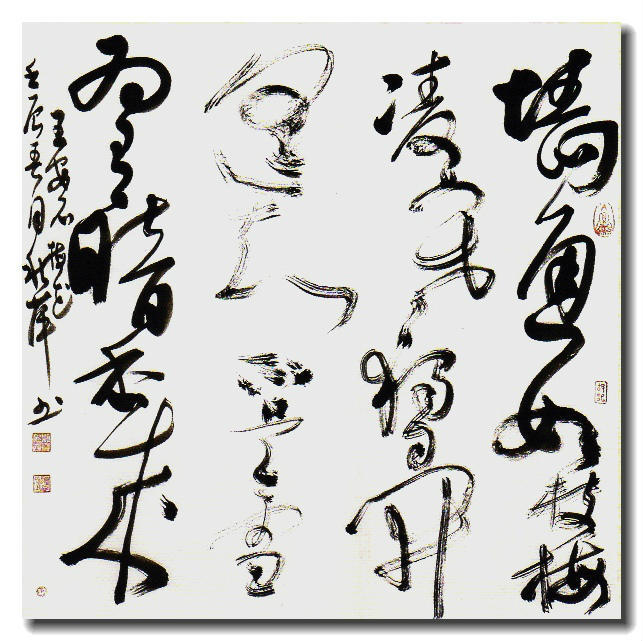 墙角数枝梅
凌寒獨自開
遥知不是雪
为有暗香来
王安石梅花
壬辰春月